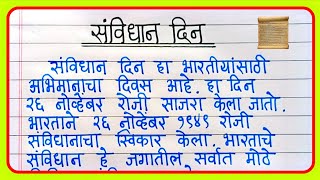 संविधान दिन
संविधान दिन हा भारतीयांसाठी
अभिमानाचा दिवस आहे. हा दिन
२६ नोव्हेंबर रोजी साजरा केला जातो.
भारताने २६ नोव्हेंबर १९४९ रोजी
संविधानाचा स्विकार केला. भारताचे
संविधान हे जगातील सर्वात मोठे